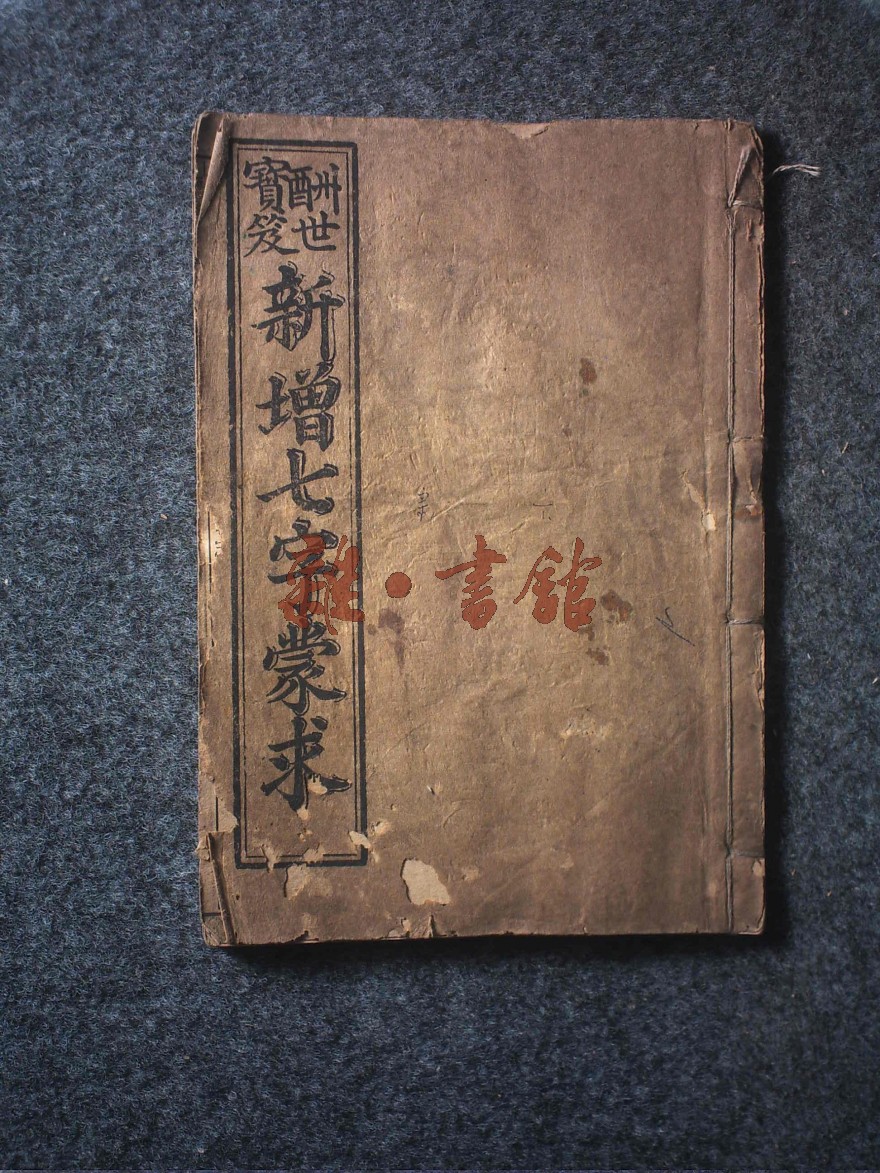 酬世
寳笈
新增七字蒙求
雜·書館